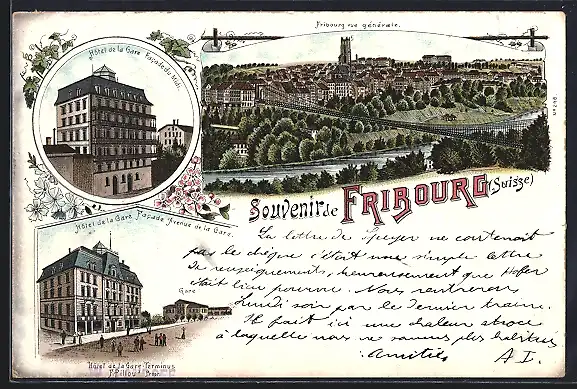 Fribourg vue générale.
Hôtel de la Gare Façade du Midi.
Nº 248
Souvenir de FRIBOURG (Suisse)
Hôtel de la Gare, Façade Avenue de la Gare.
Gare
Hôtel de la Gare Terminus
La lettre de Speyer ne contenait
pas le chèque c'était une simple lettre
de renseignements, heureusement que Hofer
était bien pourvu. Nous rentrerons
lundi soir par le dernier train.
Il fait ici une chaleur atroce
à laquelle nous ne sommes plus habitués
Amitiés A I.